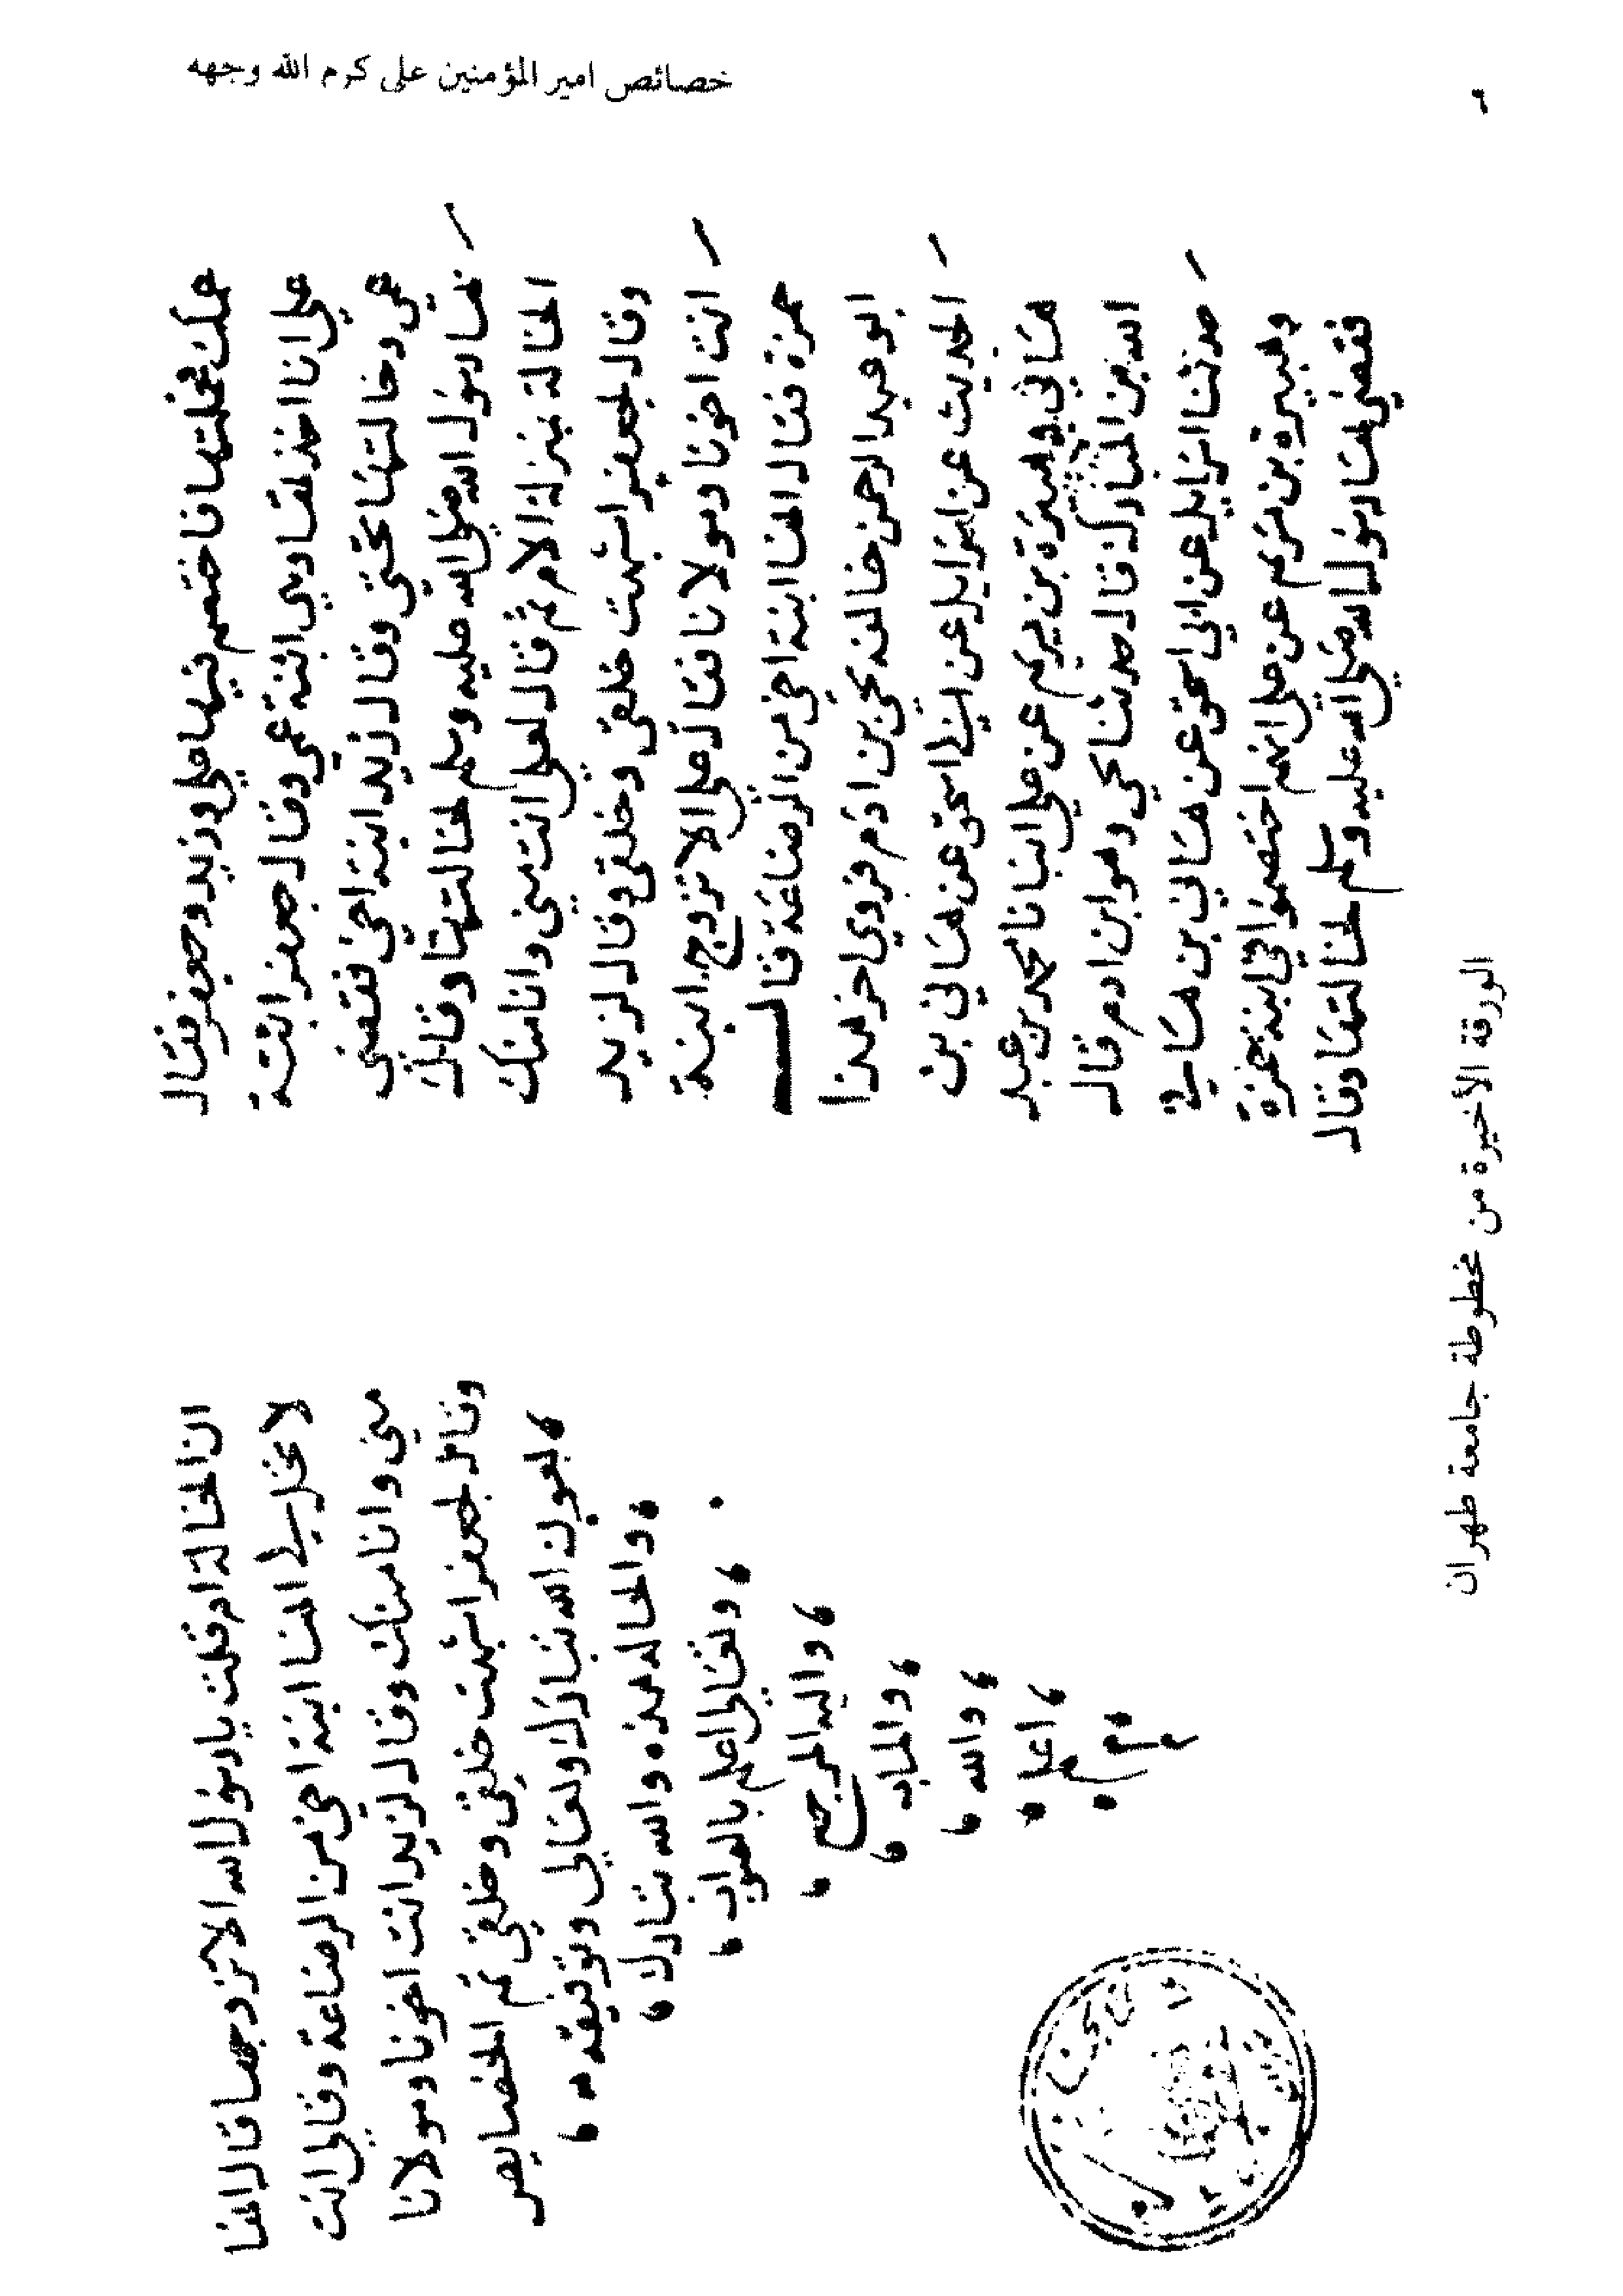 ٦
خصائص امير المؤمنين على كرم الله وجهه
عمك فحملتها فاختصم فيها على وزيد وجعفر فقال
على انا اخذتها وهي ابنة عمي وقال جعفر ابنة
عمي وخالتها تحتي وقال زيد ابنة اخي فقضى
بها رسول الله صلى الله عليه وسلم لخالتها وقال
الخالة بمنزلة الام ثم قال لعلى انت مني وانا منك
وقال لجعفر اشبهت خلقى وخلقى وقال لزيد
انت اخونا ومولانا فقال على الا تزوج ابنة
حمزة فقال انها ابنة اخي من الرضاعة قال
ابو عبد الرحمن خالفه يحيى بن ادم فروي اخر هذا
الحديث عن اسرايل عن ابي اسحق عن هاني بن
هاني وهبيرة بن يريم عن على انبانا محمد بن عبد
الله بن المبارك قال حدثنا يحيى وهو ابن ادم قال
حدثنا اسرايل عن ابي اسحق عن هاني بن هاني
وهبيرة بن يريم عن على انهم اختصموا في ابنة حمزة
فقضى بها رسول الله صلى الله عليه وسلم لخالتها وقال
ان الخالة ام قلت يا رسول الله الا تزوجها قال انها
لا تحل لي انها ابنة اخي من الرضاعة وقال لي انت
مني وانا منك وقال لزيد انت اخونا ومولانا
وقال لجعفر اشبهت خلقي وخلقي تم الخصايص
بعون الله تبارك وتعالى وتوفيقه
والحاله هذه والله تبارك
وتعالى اعلم بالصواب
واليه المرجع
والماب
والله
اعلم
الورقة الأخيرة من مخطوطة جامعة طهران